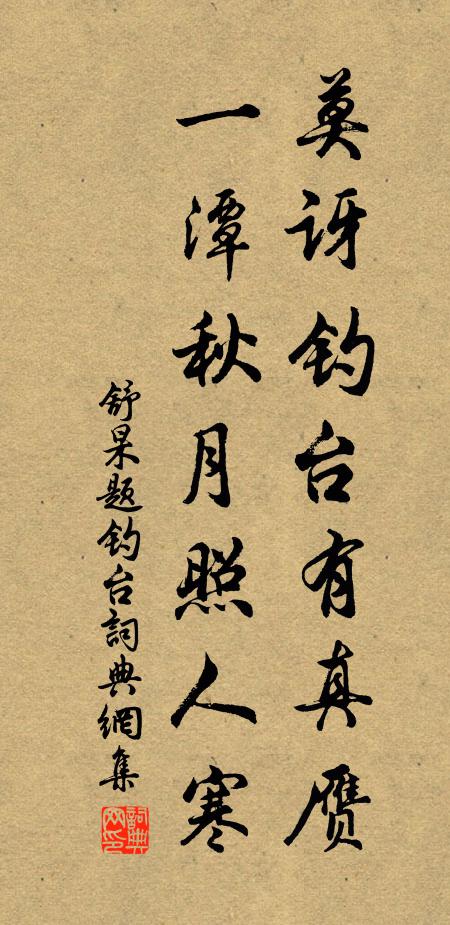 莫讶钓台有真赝
一潭秋月照人寒
舒杲题钓台詞典網集
詞典网印